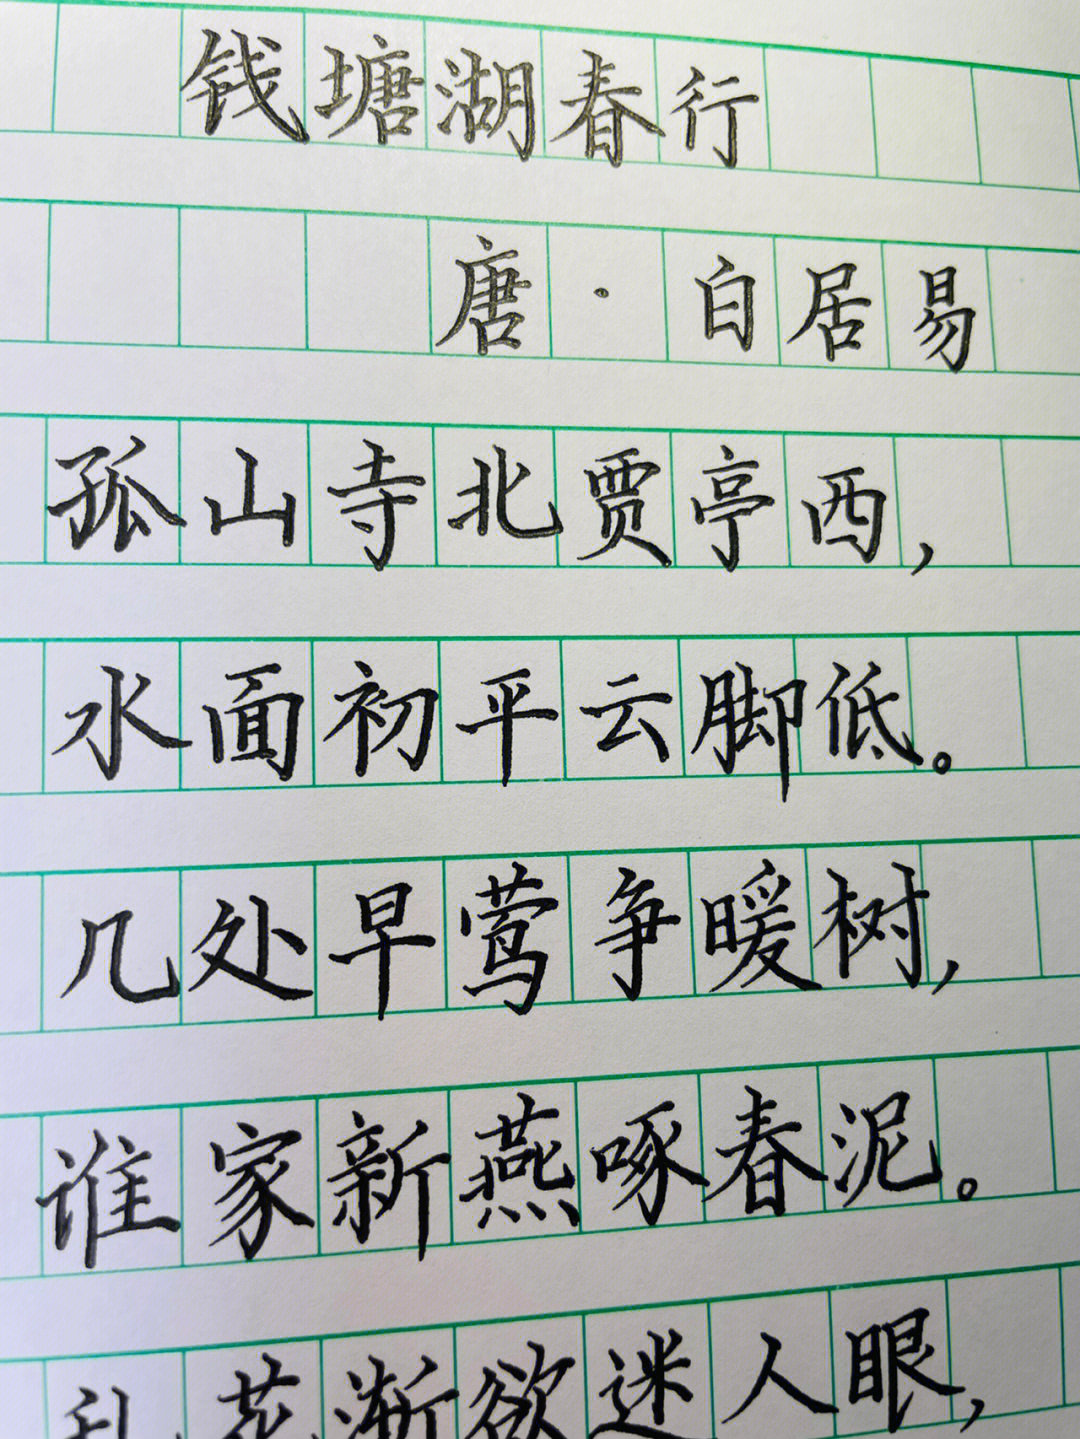 钱塘湖春行
唐·白居易
孤山寺北贾亭西，
水面初平云脚低。
几处早莺争暖树，
谁家新燕啄春泥。
乱花渐欲迷人眼，